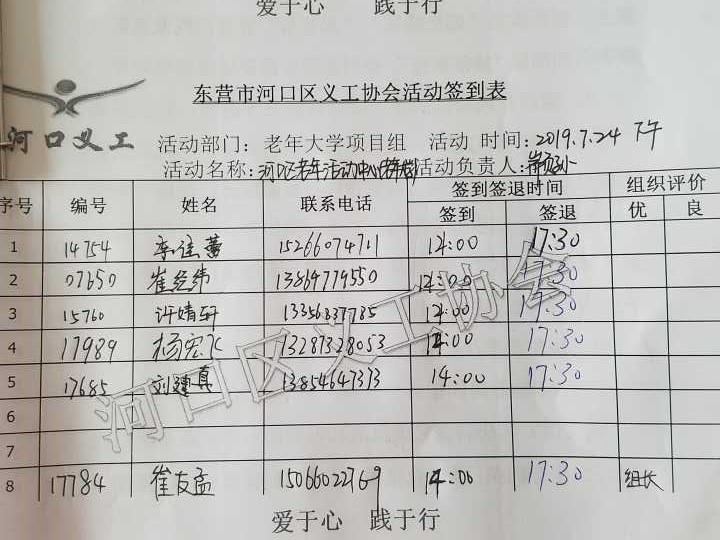 爱于心 践于行
东营市河口区义工协会活动签到表
河口义工
活动部门: 老年大学项目组 活动 时间: 2019.7.24 下午
活动名称: 河口区老年活动中心 活动负责人:
序号 编号 姓名 联系电话 签到签退时间 组织评价
签到 签退 优 良
1 14754 李佳蕾 15266074711 14:00 17:30
2 07650 崔经纬 13864779550 14:00 17:30
3 15760 许婧轩 13356337785 14:00 17:30
4 17989 杨宏飞 13287328053 14:00 17:30
5 17685 刘建真 13854647373 14:00 17:30
6
7
8 17784 崔友孟 15066022769 14:00 17:30 组长
河口区义工协会
爱于心 践于行